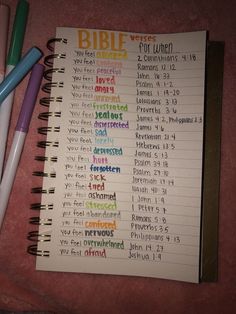 BIBLE verses
for when
you feel 2 Corinthians 4:8
you feel Romans 12:12
you feel peaceful John 14:33
you feel loved Psalm
you feel angry James 1:19-20
you feel annoyed Colossians 3:13
you feel frustrated Proverbs 3:5
you feel jealous James 4:2, Philippians 2:3
you feel disrespected James 4:6
you feel sad Revelation 21:4
you feel lonely Hebrews 13:5
you feel depressed James 5:13
you feel hurt Psalm 34:18
you feel forgotten Psalm
you feel sick Jeremiah 17:14
you feel tired Isaiah 40:31
you feel ashamed 1 John 1:9
you feel stressed 1 Peter 5:7
you feel abandoned Romans 5:8
you feel confused Proverbs 3:5
you feel nervous Philippians 4:13
you feel overwhelmed John 14:27
you feel afraid Joshua 1:9